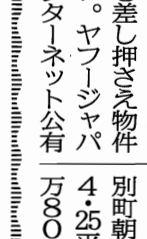 差し押さえ物件
。ヤフージャパ
ターネット公有
別町朝
4・25平
万80